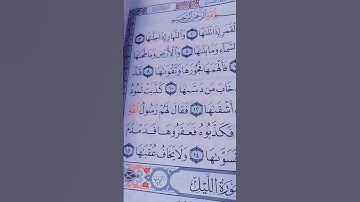 الرَّحْمَٰنِ الرَّحِيمِ
الْقَمَرِ إِذَا تَلَىٰهَا ۝٢ وَالنَّهَارِ إِذَا جَلَّىٰهَا ۝٣
السَّمَاءِ وَمَا بَنَىٰهَا ۝٥ وَالْأَرْضِ وَمَا طَحَىٰهَا
فَأَلْهَمَهَا فُجُورَهَا وَتَقْوَىٰهَا ۝٨ قَدْ
خَابَ مَن دَسَّىٰهَا ۝١٠ كَذَّبَتْ ثَمُودُ
أَشْقَىٰهَا ۝١٢ فَقَالَ لَهُمْ رَسُولُ اللَّهِ
فَكَذَّبُوهُ فَعَقَرُوهَا فَدَمْدَمَ
فَسَوَّىٰهَا ۝١٤ وَلَا يَخَافُ عُقْبَىٰهَا ۝١٥
سُورَةُ اللَّيْلِ